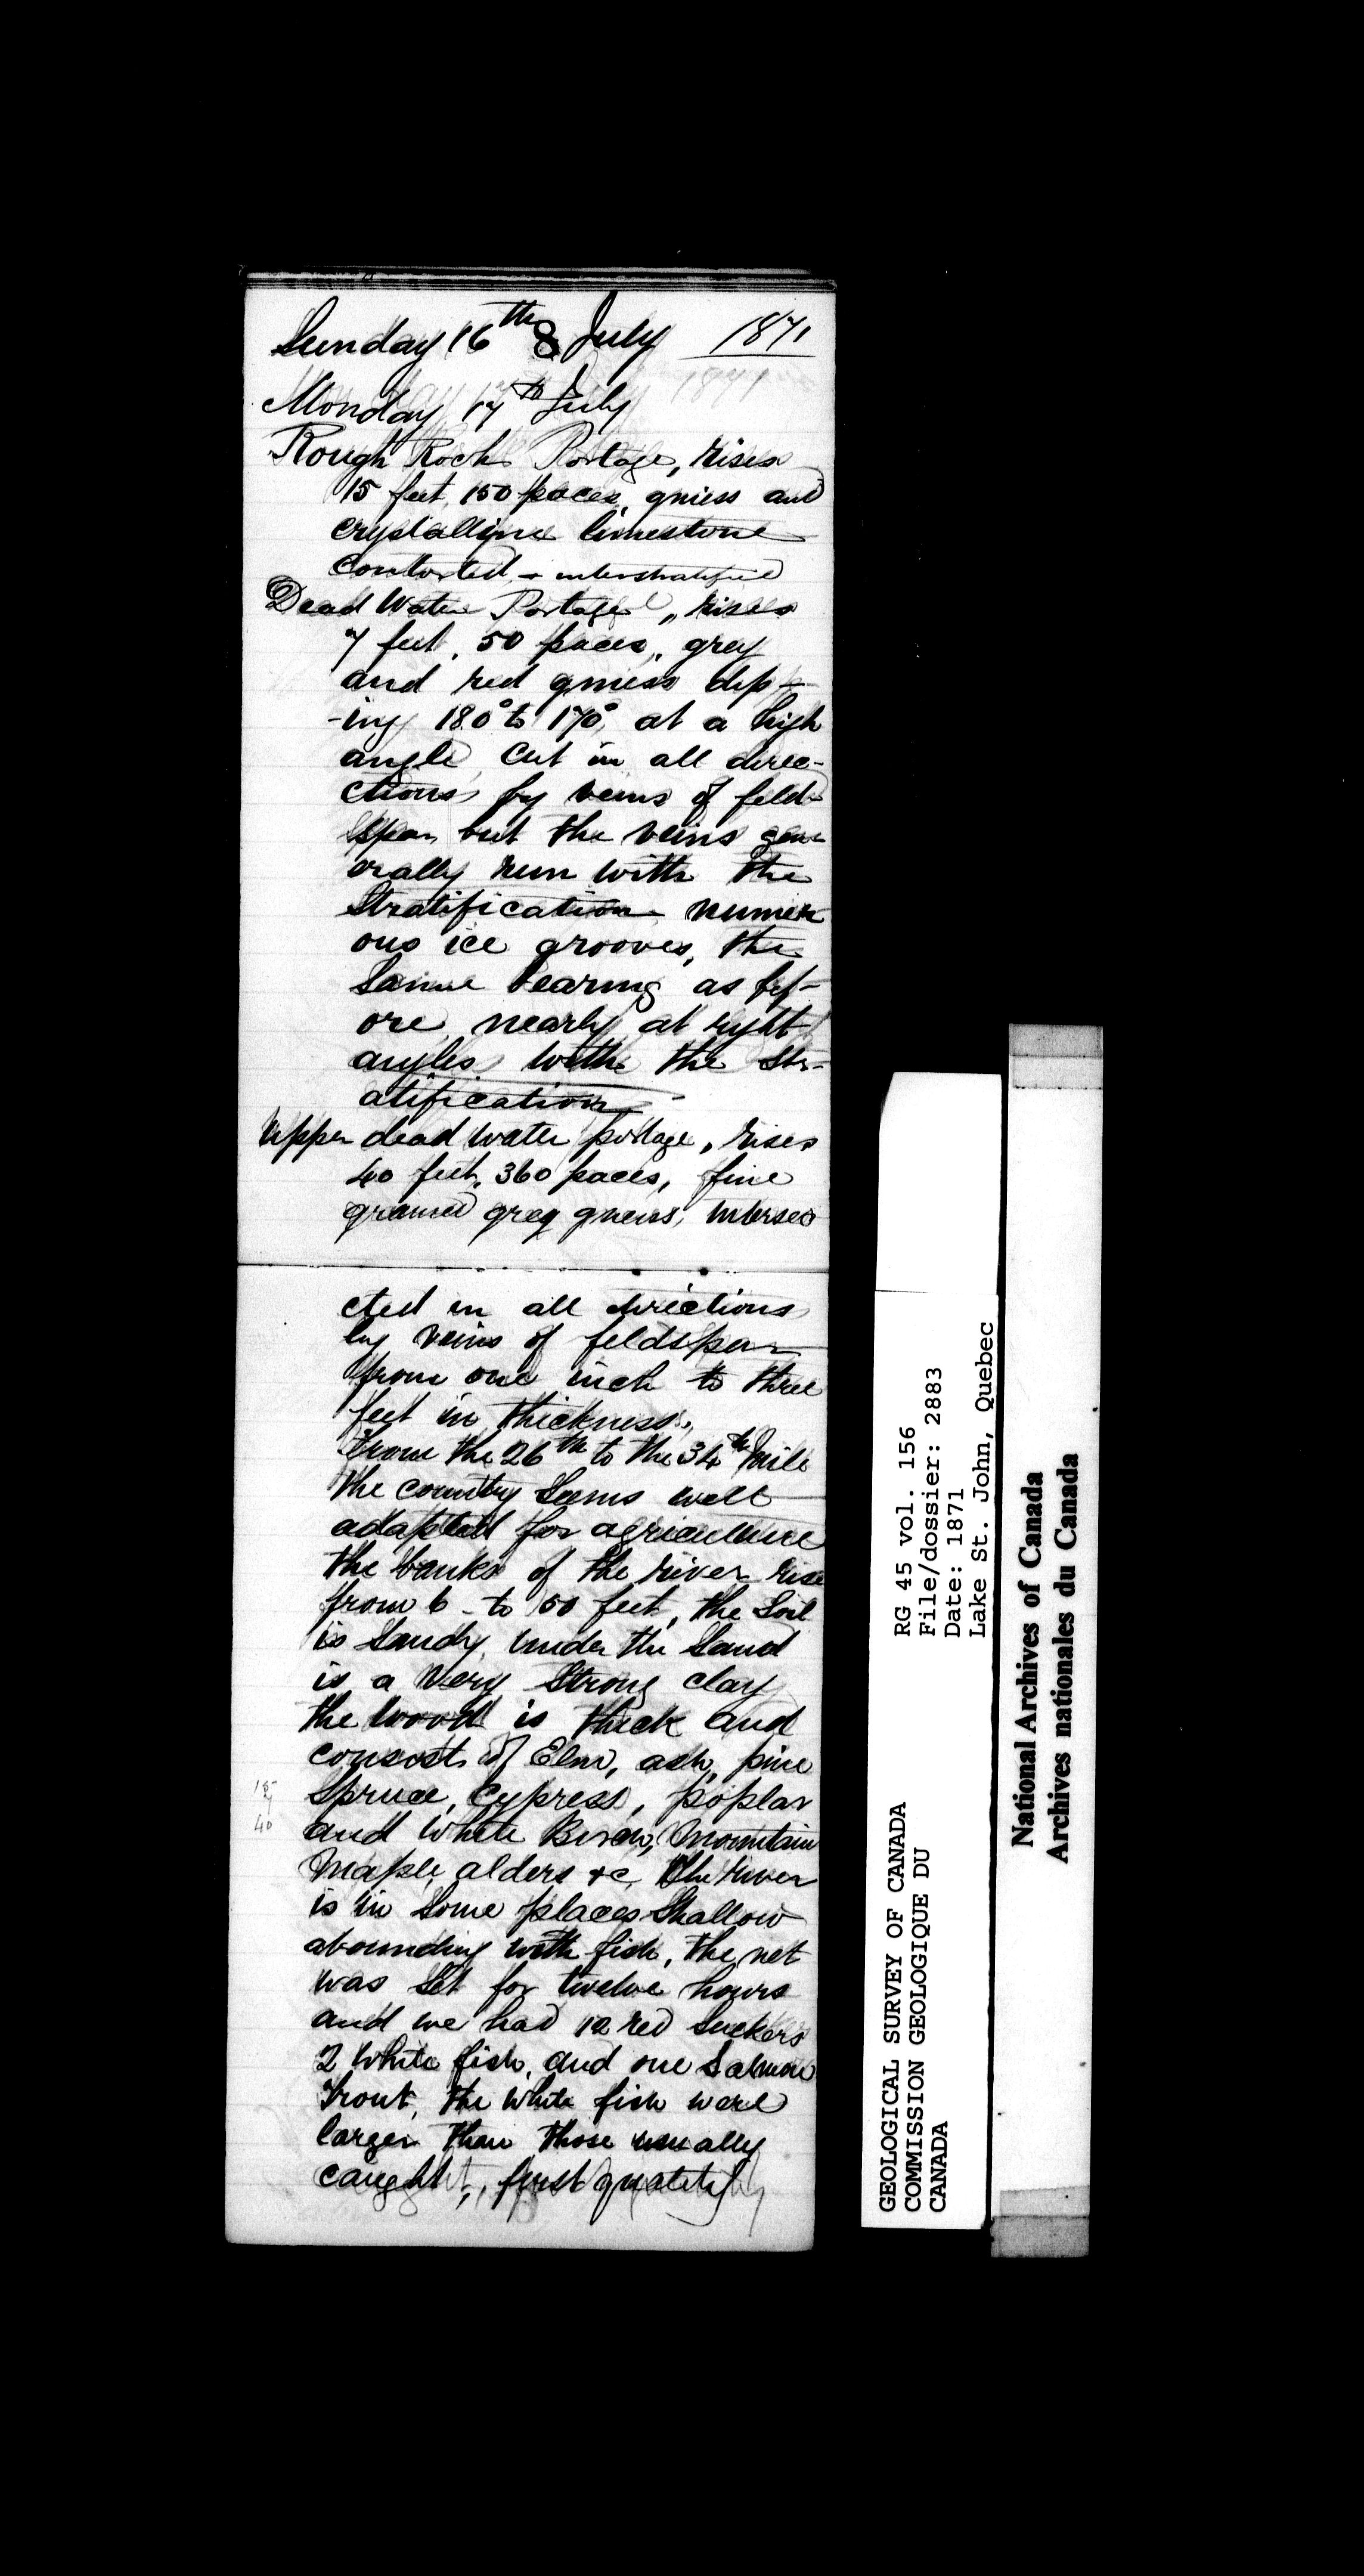 Sunday 16th 8 July 1871
Monday 17th July
Rough Rock Portage, rises
15 feet, 150 paces, gniess and
crystalline limestone
contorted + interstratified
Dead Water Portage, rises
7 feet, 50 paces, grey
and red gniess dip-
-ing 180° to 170°, at a high
angle, cut in all direc-
ctions by veins of feld-
spar but the veins gen-
erally run with the
Stratification numer
ous ice grooves, the
Same bearing as bef-
ore, nearly at right
angles with the str-
atification
Upper dead water portage, rises
40 feet, 360 paces, fine
grained grey gneiss, interse
cted in all directions
by veins of feldspar
from one inch to three
feet in thickness,
From the 26th to the 34th mile
the country seems well
adapted for agriculture
the banks of the river rise
from 6 to 50 feet, the Soil
is Sandy, under the Sand
is a very strong clay
the wood is thick and
consists of Elm, ash, pine
Spruce, Cypress, poplar
and White Birch, Mountain
Maple, alders &c, the river
is in some places Shallow
abounding with fish, the net
was set for twelve hours
and we had 12 red suckers
2 White fish, and one Salmon
Trout, the white fish were
larger than those usually
caught, first quality
40
RG 45 vol. 156
File/dossier: 2883
Date: 1871
Lake St. John, Quebec
GEOLOGICAL SURVEY OF CANADA
COMMISSION GEOLOGIQUE DU
CANADA
National Archives of Canada
Archives nationales du Canada